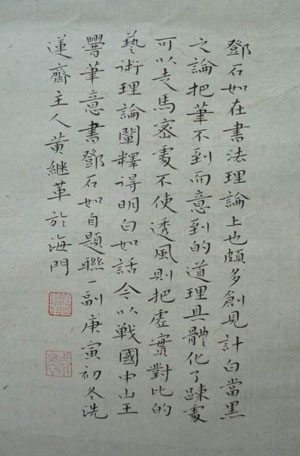 鄧石如在書法理論上也頗多創見計白當黑
之論把筆不到而意到的道理具體化了疎處
可以走馬密處不使透風則把虛實對比的
藝術理論闡釋得明白如話今以戰國中山王
譽筆意書鄧石如自題聯一副庚寅初冬洗
蓮齋主人黃继革於海門